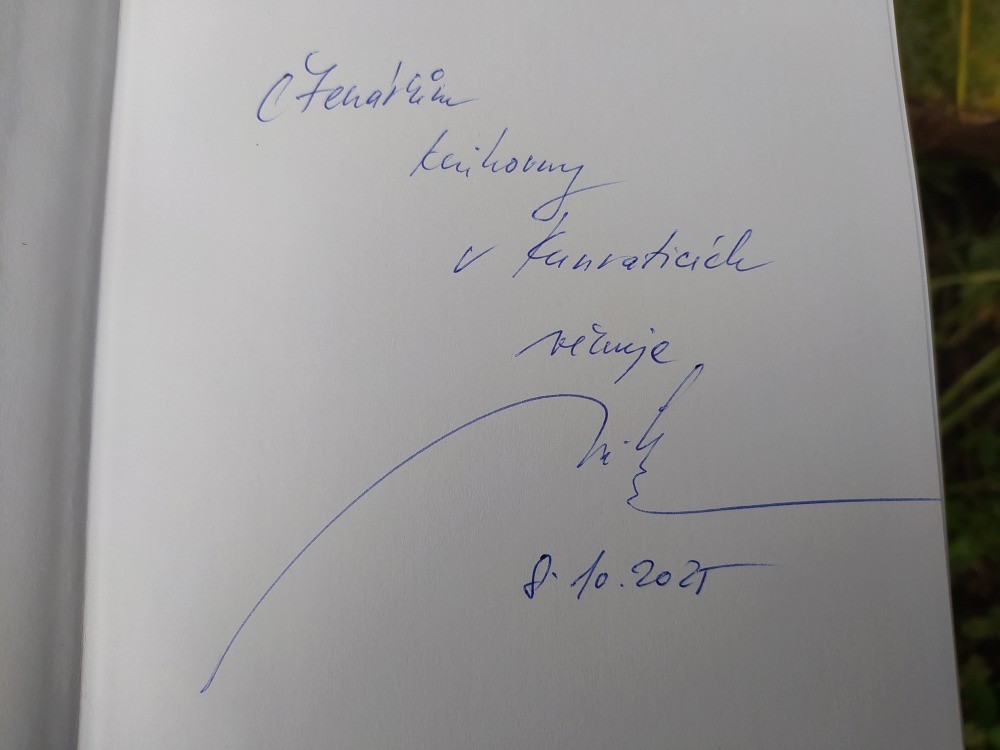 Čtenářům
knihovny
v Kunraticích
věnuje
8. 10. 2025